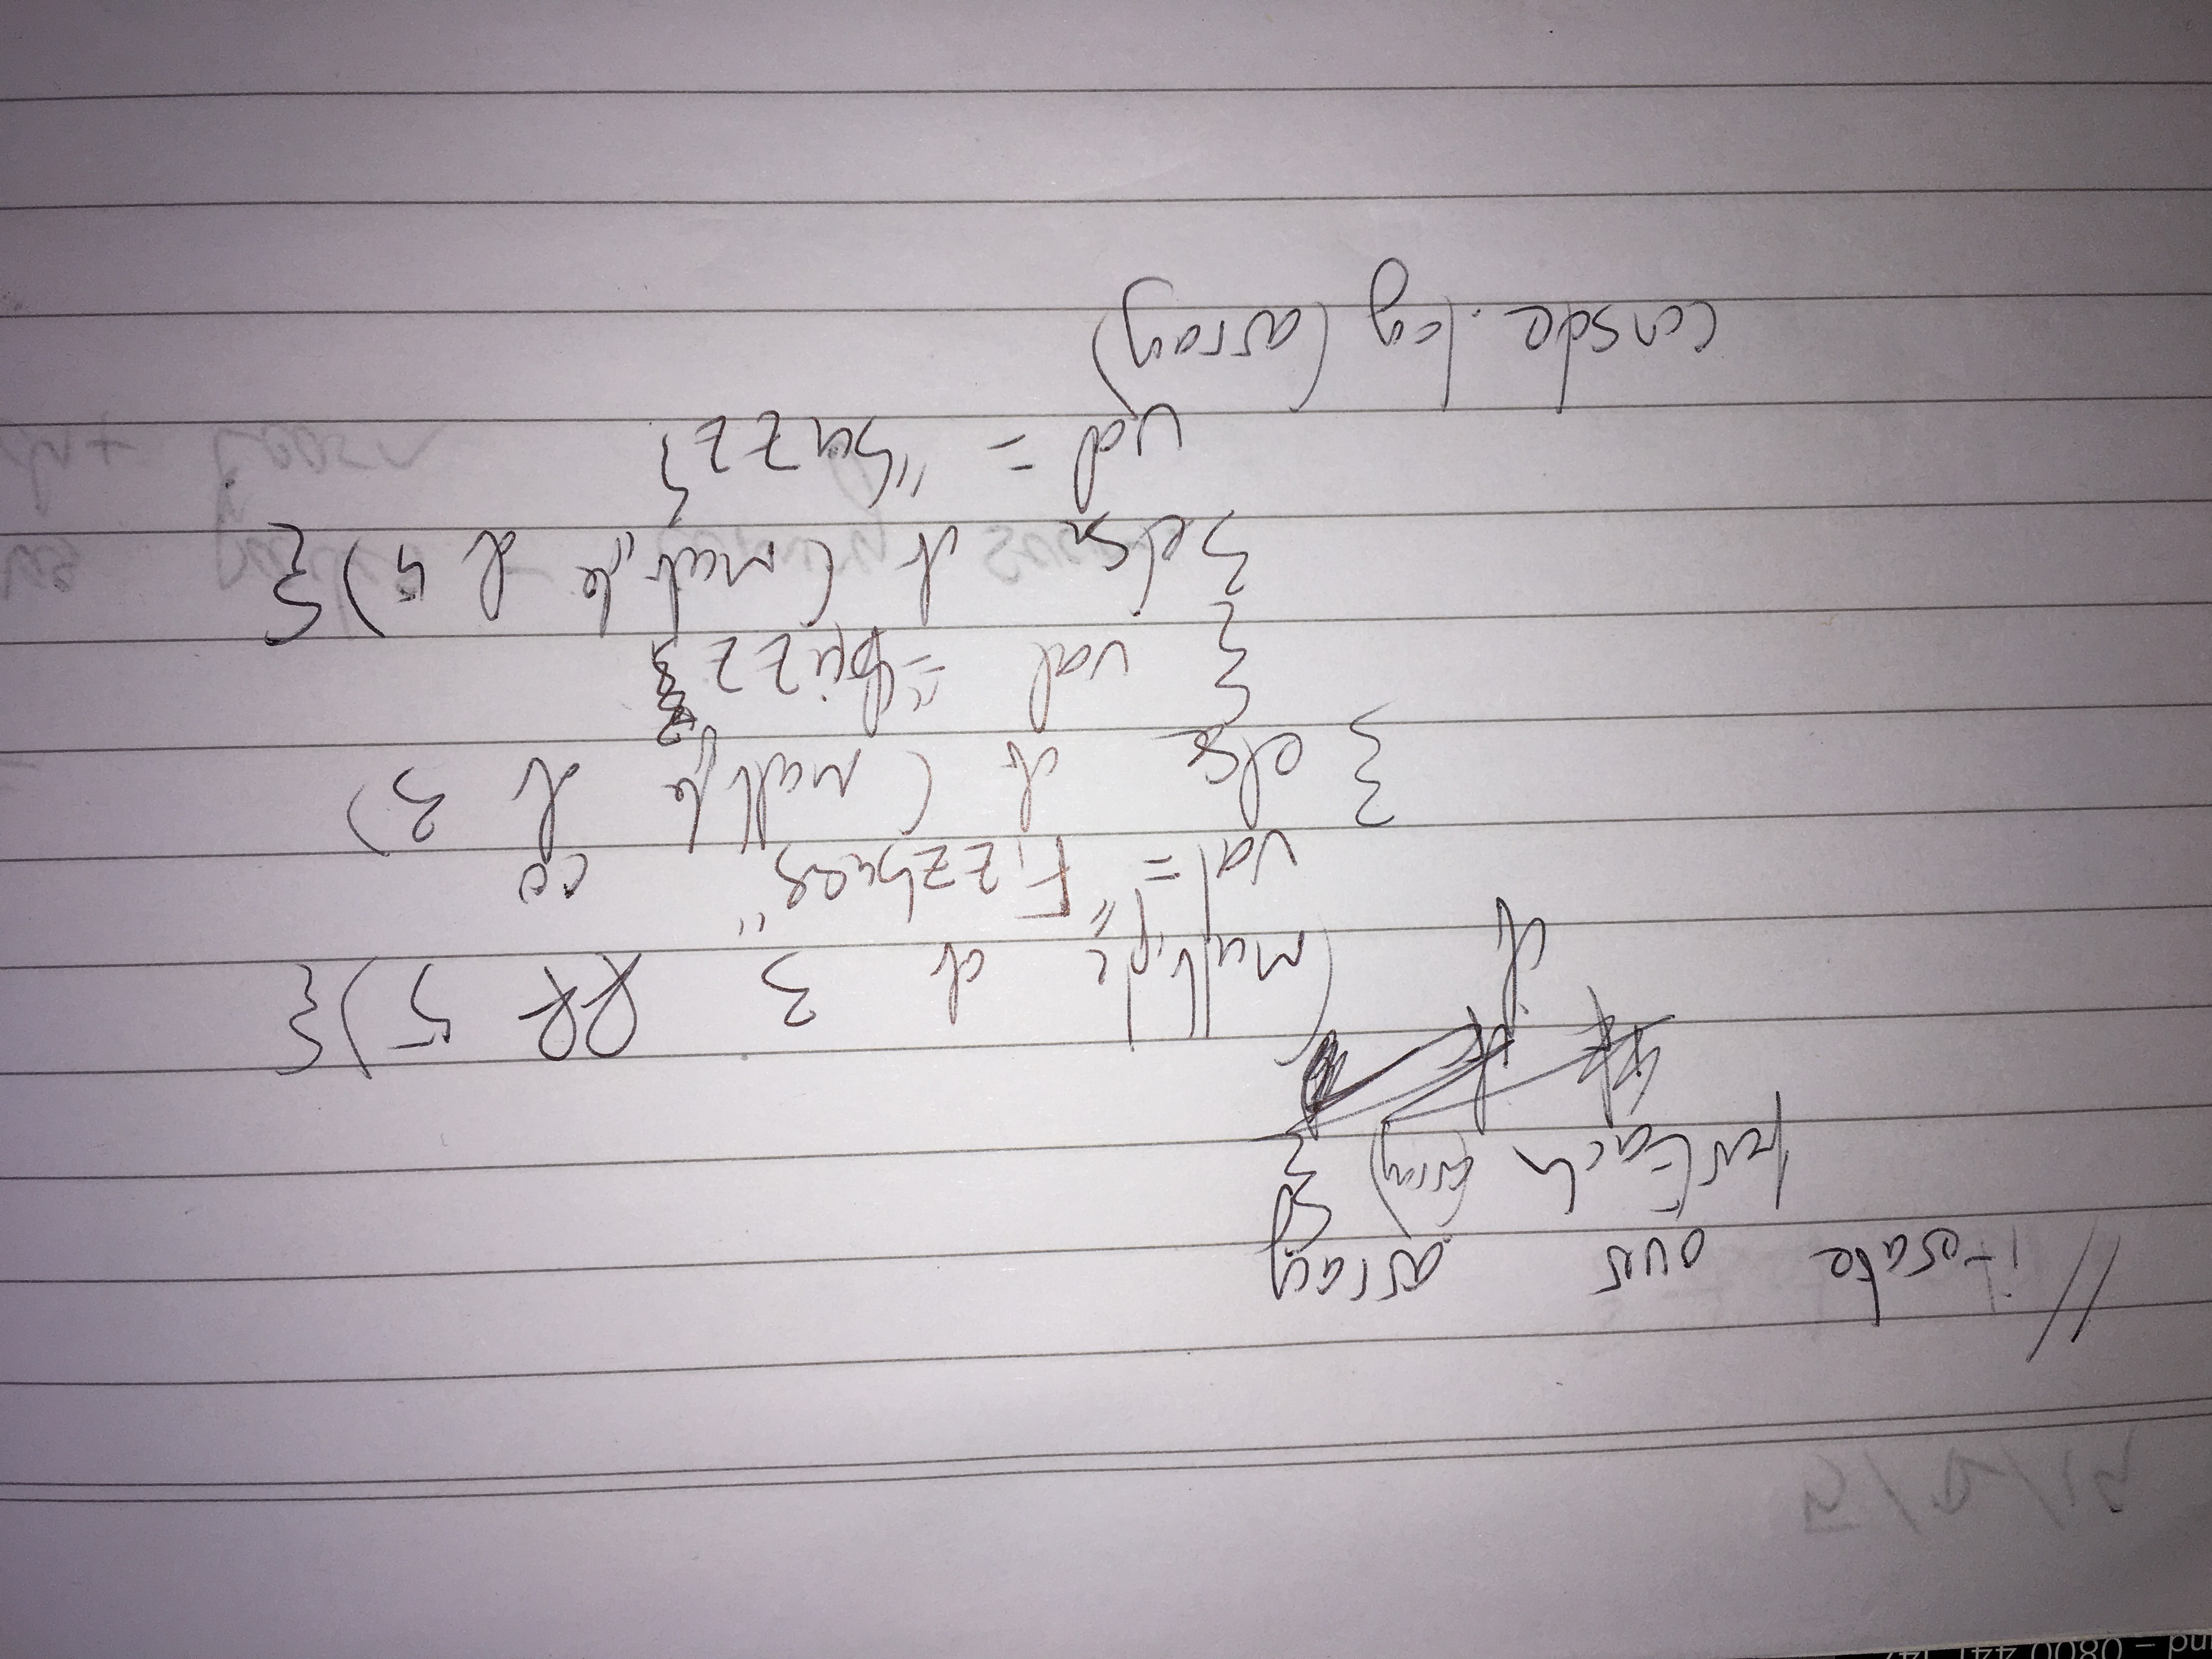 und – 0800 441 142
5/2/19
// iterate over array
forEach (array) {
if (multiple of 3 && 5){
val = "Fizzbuzz"
} else if (multiple of 3)
{ val = "
} else if (multiple of 5) {
val = "buzz}
console.log (array)